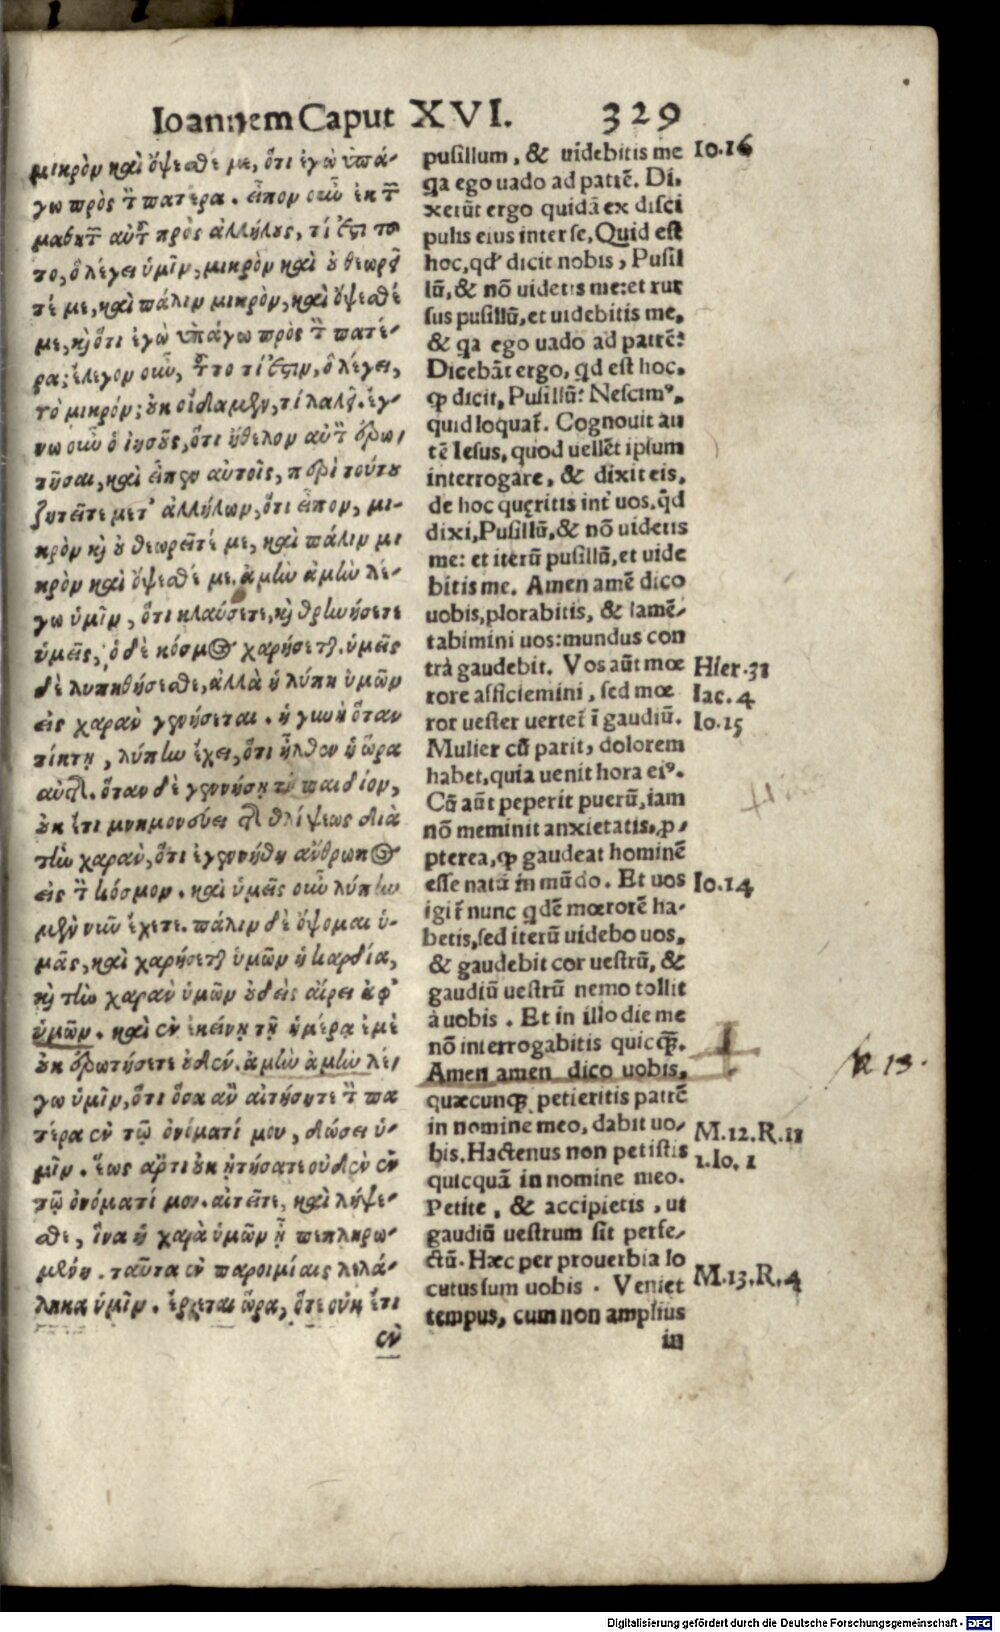 Ioannem Caput XVI. 329
μικρὸν καὶ ὄψεσθέ με, ὅτι ἐγὼ ὑπά-
γω πρὸς τ̄ πατέρα. εἶπον οὖν ἐκ τ̄
μαθητ̄ αὐτ̄ πρὸς ἀλλήλους, τί ἐστι τοῦ
το, ὃ λέγει ὑμῖν, μικρὸν καὶ οὐ θεωρεῖ
τέ με, καὶ πάλιν μικρὸν, καὶ ὄψεσθέ
με, κỳ ὅτι ἐγὼ ὑπάγω πρὸς τ̄ πατέ-
ρα; ἔλεγον οὖν, τοῦτο τί ἐστιν, ὃ λέγει,
τὸ μικρόν; οὐκ οἴδαμεν, τί λαλεῖ. ἔγ-
νω οὖν ὁ ἰησοῦς, ὅτι ἤθελον αὐτ̄ ἐρω-
τῆσαι, καὶ εἶπεν αὐτοῖς, περὶ τούτου
ζητεῖτε μετ' ἀλλήλων, ὅτι εἶπον, μι-
κρὸν κỳ οὐ θεωρεῖτέ με, καὶ πάλιν μι
κρὸν καὶ ὄψεσθέ με. ἀμὴν ἀμὴν λέ-
γω ὑμῖν, ὅτι κλαύσετε, κỳ θρηνήσετε
ὑμεῖς, ὁ δὲ κόσμος χαρήσεται. ὑμεῖς
δὲ λυπηθήσεσθε, ἀλλὰ ἡ λύπη ὑμῶν
εἰς χαρὰν γενήσεται. ἡ γυνὴ ὅταν
τίκτῃ, λύπην ἔχει, ὅτι ἦλθεν ἡ ὥρα
αὐτῆς. ὅταν δὲ γεννήσῃ τὸ παιδίον,
οὐκ ἔτι μνημονεύει τῆς θλίψεως διὰ
τὴν χαρὰν, ὅτι ἐγεννήθη ἄνθρωπος
εἰς τ̄ κόσμον. καὶ ὑμεῖς οὖν λύπην
μὲν νῦν ἔχετε. πάλιν δὲ ὄψομαι ὑ-
μᾶς, καὶ χαρήσεται ὑμῶν ἡ καρδία,
κỳ τὴν χαρὰν ὑμῶν οὐδεὶς αἴρει ἀφ'
ὑμῶν. καὶ ἐν ἐκείνῃ τῇ ἡμέρᾳ ἐμὲ
οὐκ ἐρωτήσετε οὐδέν. ἀμὴν ἀμὴν λέ-
γω ὑμῖν, ὅτι ὅσα ἂν αἰτήσητε τ̄ πα
τέρα ἐν τῷ ὀνόματί μου, δώσει ὑ-
μῖν. ἕως ἄρτι οὐκ ᾐτήσατε οὐδὲν ἐν
τῷ ὀνόματί μου. αἰτεῖτε, καὶ λήψε-
σθε, ἵνα ἡ χαρὰ ὑμῶν ᾖ πεπληρω-
μένη. ταῦτα ἐν παροιμίαις λελά-
ληκα ὑμῖν. ἔρχεται ὥρα, ὅτε οὐκ ἔτι
ἐν
pusillum, & uidebitis me
qa ego uado ad patrē. Di-
xerūt ergo quidā ex disci
pulis eius inter se, Quid est
hoc, qd dicit nobis, Pusil
lū, & nō uidetis me: et rur
sus pusillū, et uidebitis me,
& qa ego uado ad patrē?
Dicebāt ergo, qd est hoc,
qp dicit, Pusillū? Nescimꝰ,
quid loquat̄. Cognouit au
tē Iesus, quod uellēt ipsum
interrogare, & dixit eis,
de hoc quęritis int̄ uos, qd
dixi, Pusillū, & nō uidetis
me: et iterū pusillū, et uide
bitis me. Amen amē dico
uobis, plorabitis, & lamē-
tabimini uos: mundus con
trà gaudebit. Vos aūt mœ
rore afficiemini, sed mœ
ror uester uertet̄ ī gaudiū.
Mulier cū parit, dolorem
habet, quia uenit hora eiꝰ.
Cū aūt peperit puerū, iam
nō meminit anxietatis, p-
pterea, qp gaudeat hominē
esse natū in mūdo. Et uos
igit̄ nunc qdē mœrorē ha-
betis, sed iterū uidebo uos,
& gaudebit cor uestrū, &
gaudiū uestrū nemo tollit
à uobis. Et in illo die me
nō interrogabitis quicqꝫ.
Amen amen dico uobis,
quæcunqꝫ petieritis patrē
in nomine meo, dabit uo-
bis. Hactenus non petistis
quicquā in nomine meo.
Petite, & accipietis, ut
gaudiū uestrum sit perfe-
ctū. Hæc per prouerbia lo
cutus sum uobis. Veniet
tempus, cum non amplius
in
Io.16
Hier.31
Iac.4
Io.15
Io.14
R 13.
M.12.R.11
1.Io.1
M.13.R.4
Digitalisierung gefördert durch die Deutsche Forschungsgemeinschaft - DFG